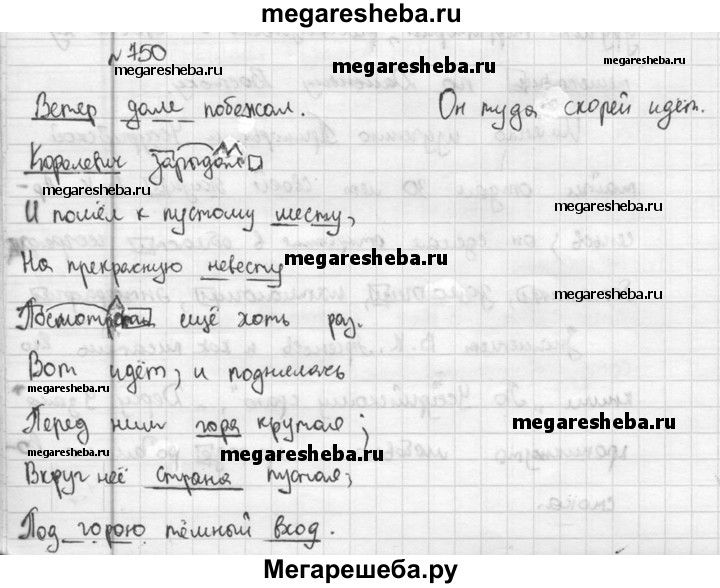 megaresheba.ru
№750
megaresheba.ru
megaresheba.ru
Ветер дале побежал. Он туда скорей идёт.
megaresheba.ru
Королевич зарыдал
megaresheba.ru
И пошёл к пустому месту,
megaresheba.ru
На прекрасную невесту
megaresheba.ru
Посмотреть ещё хоть раз.
megaresheba.ru
Вот идёт; и поднялась
megaresheba.ru
Перед ним гора крутая;
megaresheba.ru
megaresheba.ru
Вкруг неё страна пустая;
megaresheba.ru
Под горою тёмный вход.
megaresheba.ru
Мегарешеба.ру